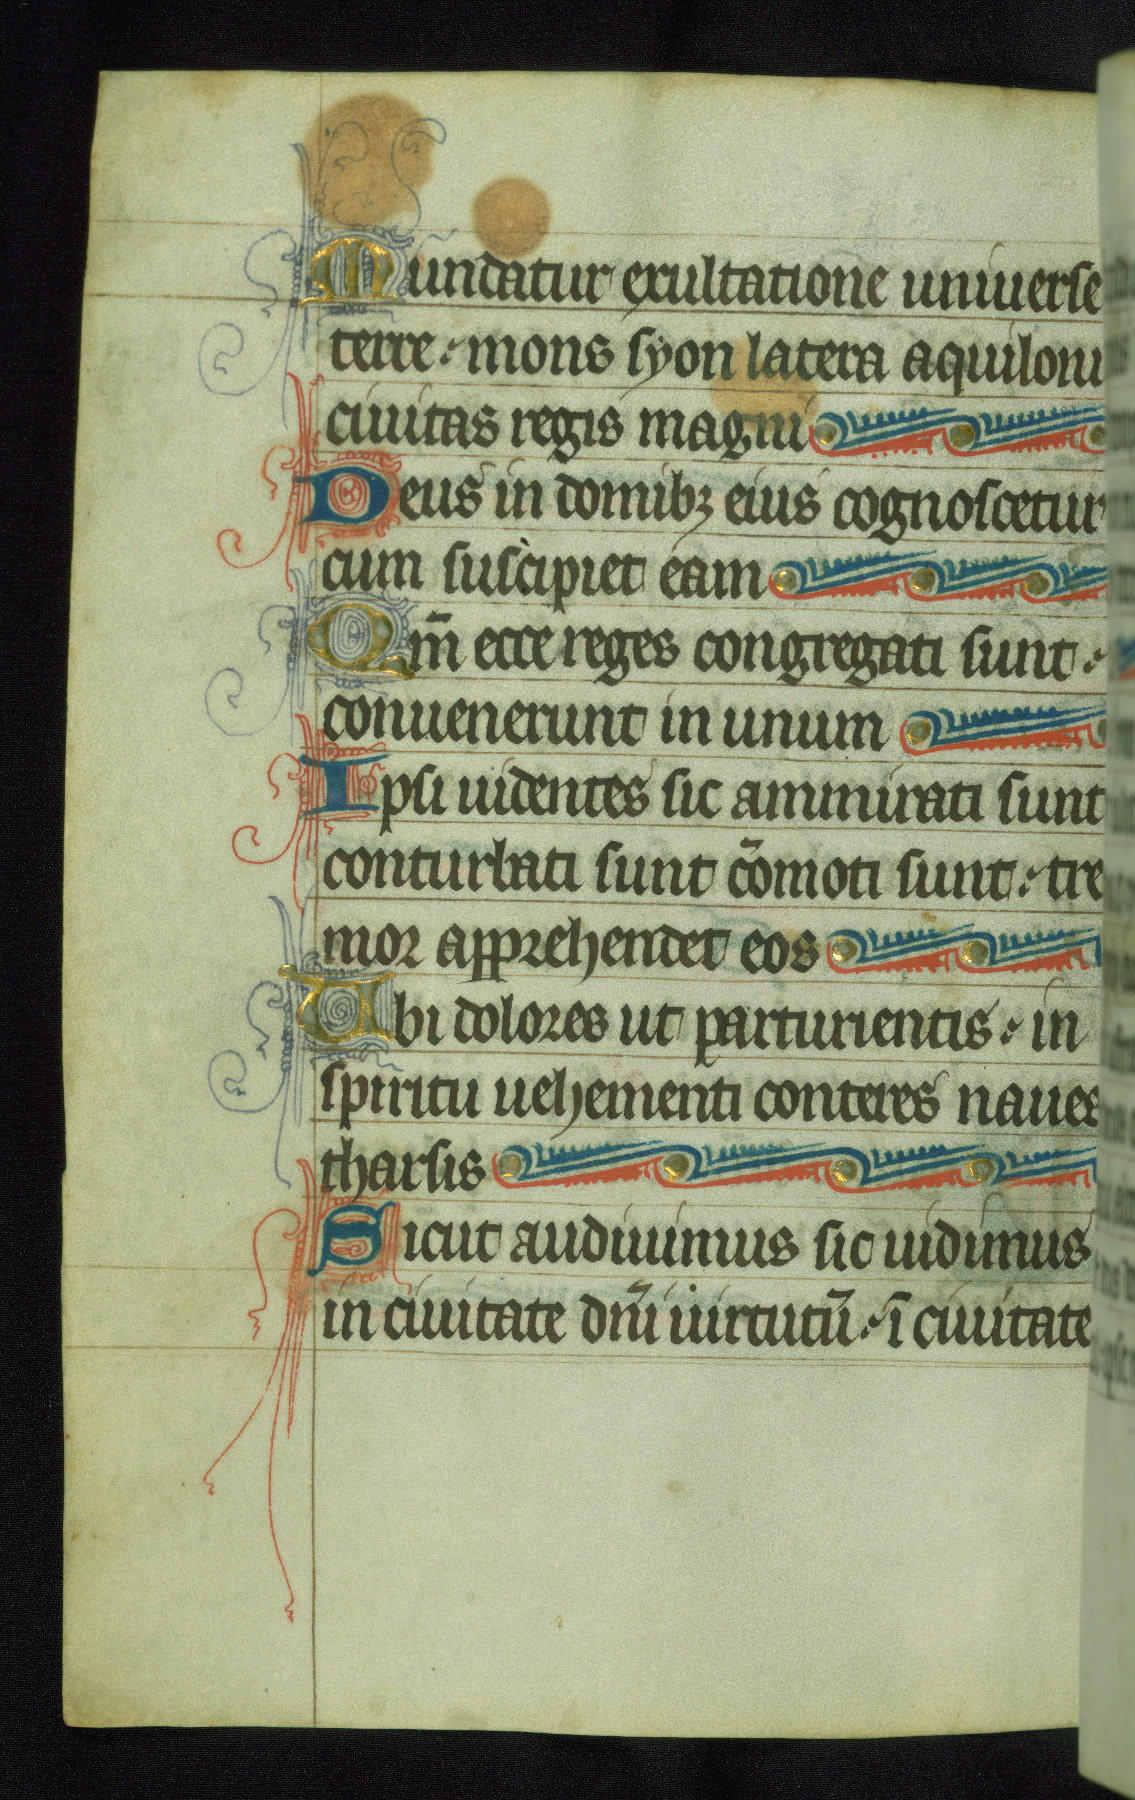 Mundatur exultatione uniuerse
terre: mons syon latera aquiloni
ciuitas regis magni
Deus in domibꝫ eius cognoscetur
cum suscipiet eam
Qm̄ ecce reges congregati sunt:
conuenerunt in unum
Ipsi uidentes sic ammirati sunt
conturbati sunt cōmoti sunt: tre
mor apprehendet eos
Ubi dolores ut parturientis: in
spiritu uehementi conteres naues
tharsis
Sicut audiuimus sic uidimus
in ciuitate dn̄i uirtutū: ī ciuitate